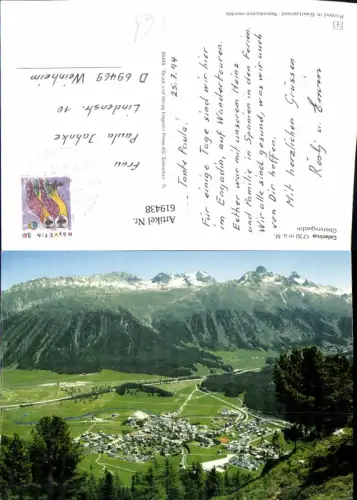 Celerina 1730 m ü. M.
Oberengadin
25.7.94
Tante Paula!
Für einige Tage sind wir hier
im Engadin, auf Wandertouren.
Esther war mit unserem Heinz
und Familie in Spanien in den Ferien.
Wir alle sind gesund, was wir auch
von Dir hoffen.
Mit herzlichen Grüssen
Rösly u. Erwin
Printed in Switzerland - Reproduction interdite
Artikel Nr.
619438
HELVETIA 80
Frau
Paula Jahnke
Lindenstr. 10
D 69469 Weinheim